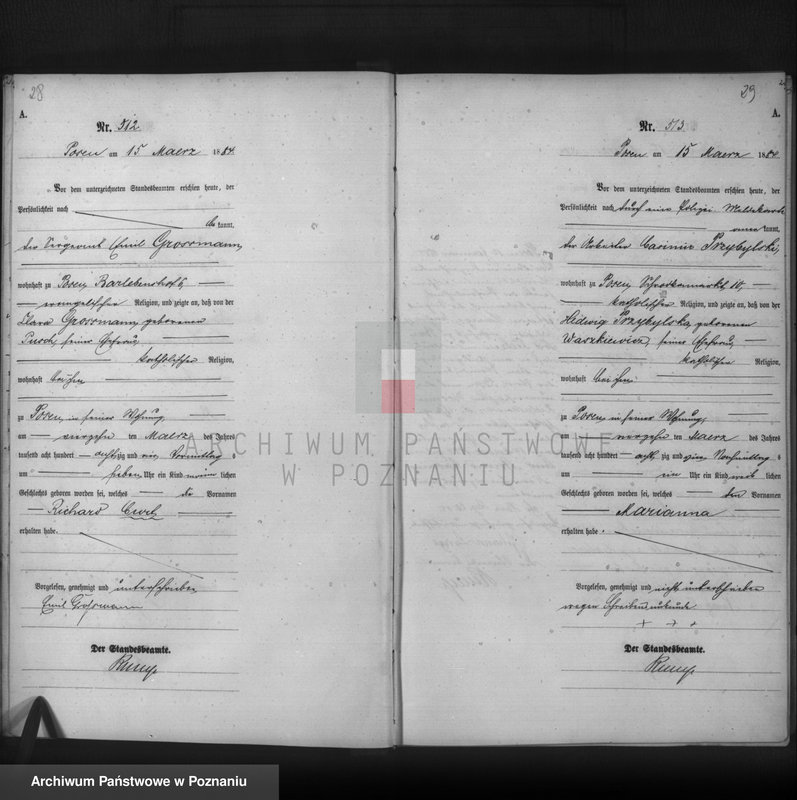 28
A.
Nr. 512
Posen am 15 Maerz 1884.
Vor dem unterzeichneten Standesbeamten erschien heute, der
Persönlichkeit nach
be kannt,
der Sergeant Emil Grossmann,
wohnhaft zu Posen
evangelischer Religion, und zeigte an, daß von der
Klara Grossmann, geborenen
Pusch, seiner Ehefrau
katholischer Religion,
wohnhaft bei ihm
zu Posen, in seiner Wohnung,
am vierzehn ten Maerz des Jahres
tausend acht hundert achtzig und vier Vormittag s
um sieben Uhr ein Kind männ lichen
Geschlechts geboren worden sei, welches die Vornamen
Richard Curt
erhalten habe.
Vorgelesen, genehmigt und unterschrieben
Emil Großmann
Der Standesbeamte.
29
A.
Nr. 513
Posen am 15 Maerz 1884.
Vor dem unterzeichneten Standesbeamten erschien heute, der
Persönlichkeit nach durch eine Polizei-Meldekarte
kannt,
der Arbeiter Casimir Przybylski,
wohnhaft zu Posen, Schrodkamarkt 10,
katholischer Religion, und zeigte an, daß von der
Hedwig Przybylska, geborenen
Waszkiewicz, seiner Ehefrau
katholischer Religion,
wohnhaft bei ihm
zu Posen, in seiner Wohnung,
am vierzehn ten Maerz des Jahres
tausend acht hundert achtzig und vier Nachmittag s
um ein Uhr ein Kind weib lichen
Geschlechts geboren worden sei, welches den Vornamen
Marianna
erhalten habe.
Vorgelesen, genehmigt und nicht unterschrieben
wegen Schreibensunkunde
+ + +
Der Standesbeamte.
ARCHIWUM PAŃSTWOWE
W POZNANIU
Archiwum Państwowe w Poznaniu